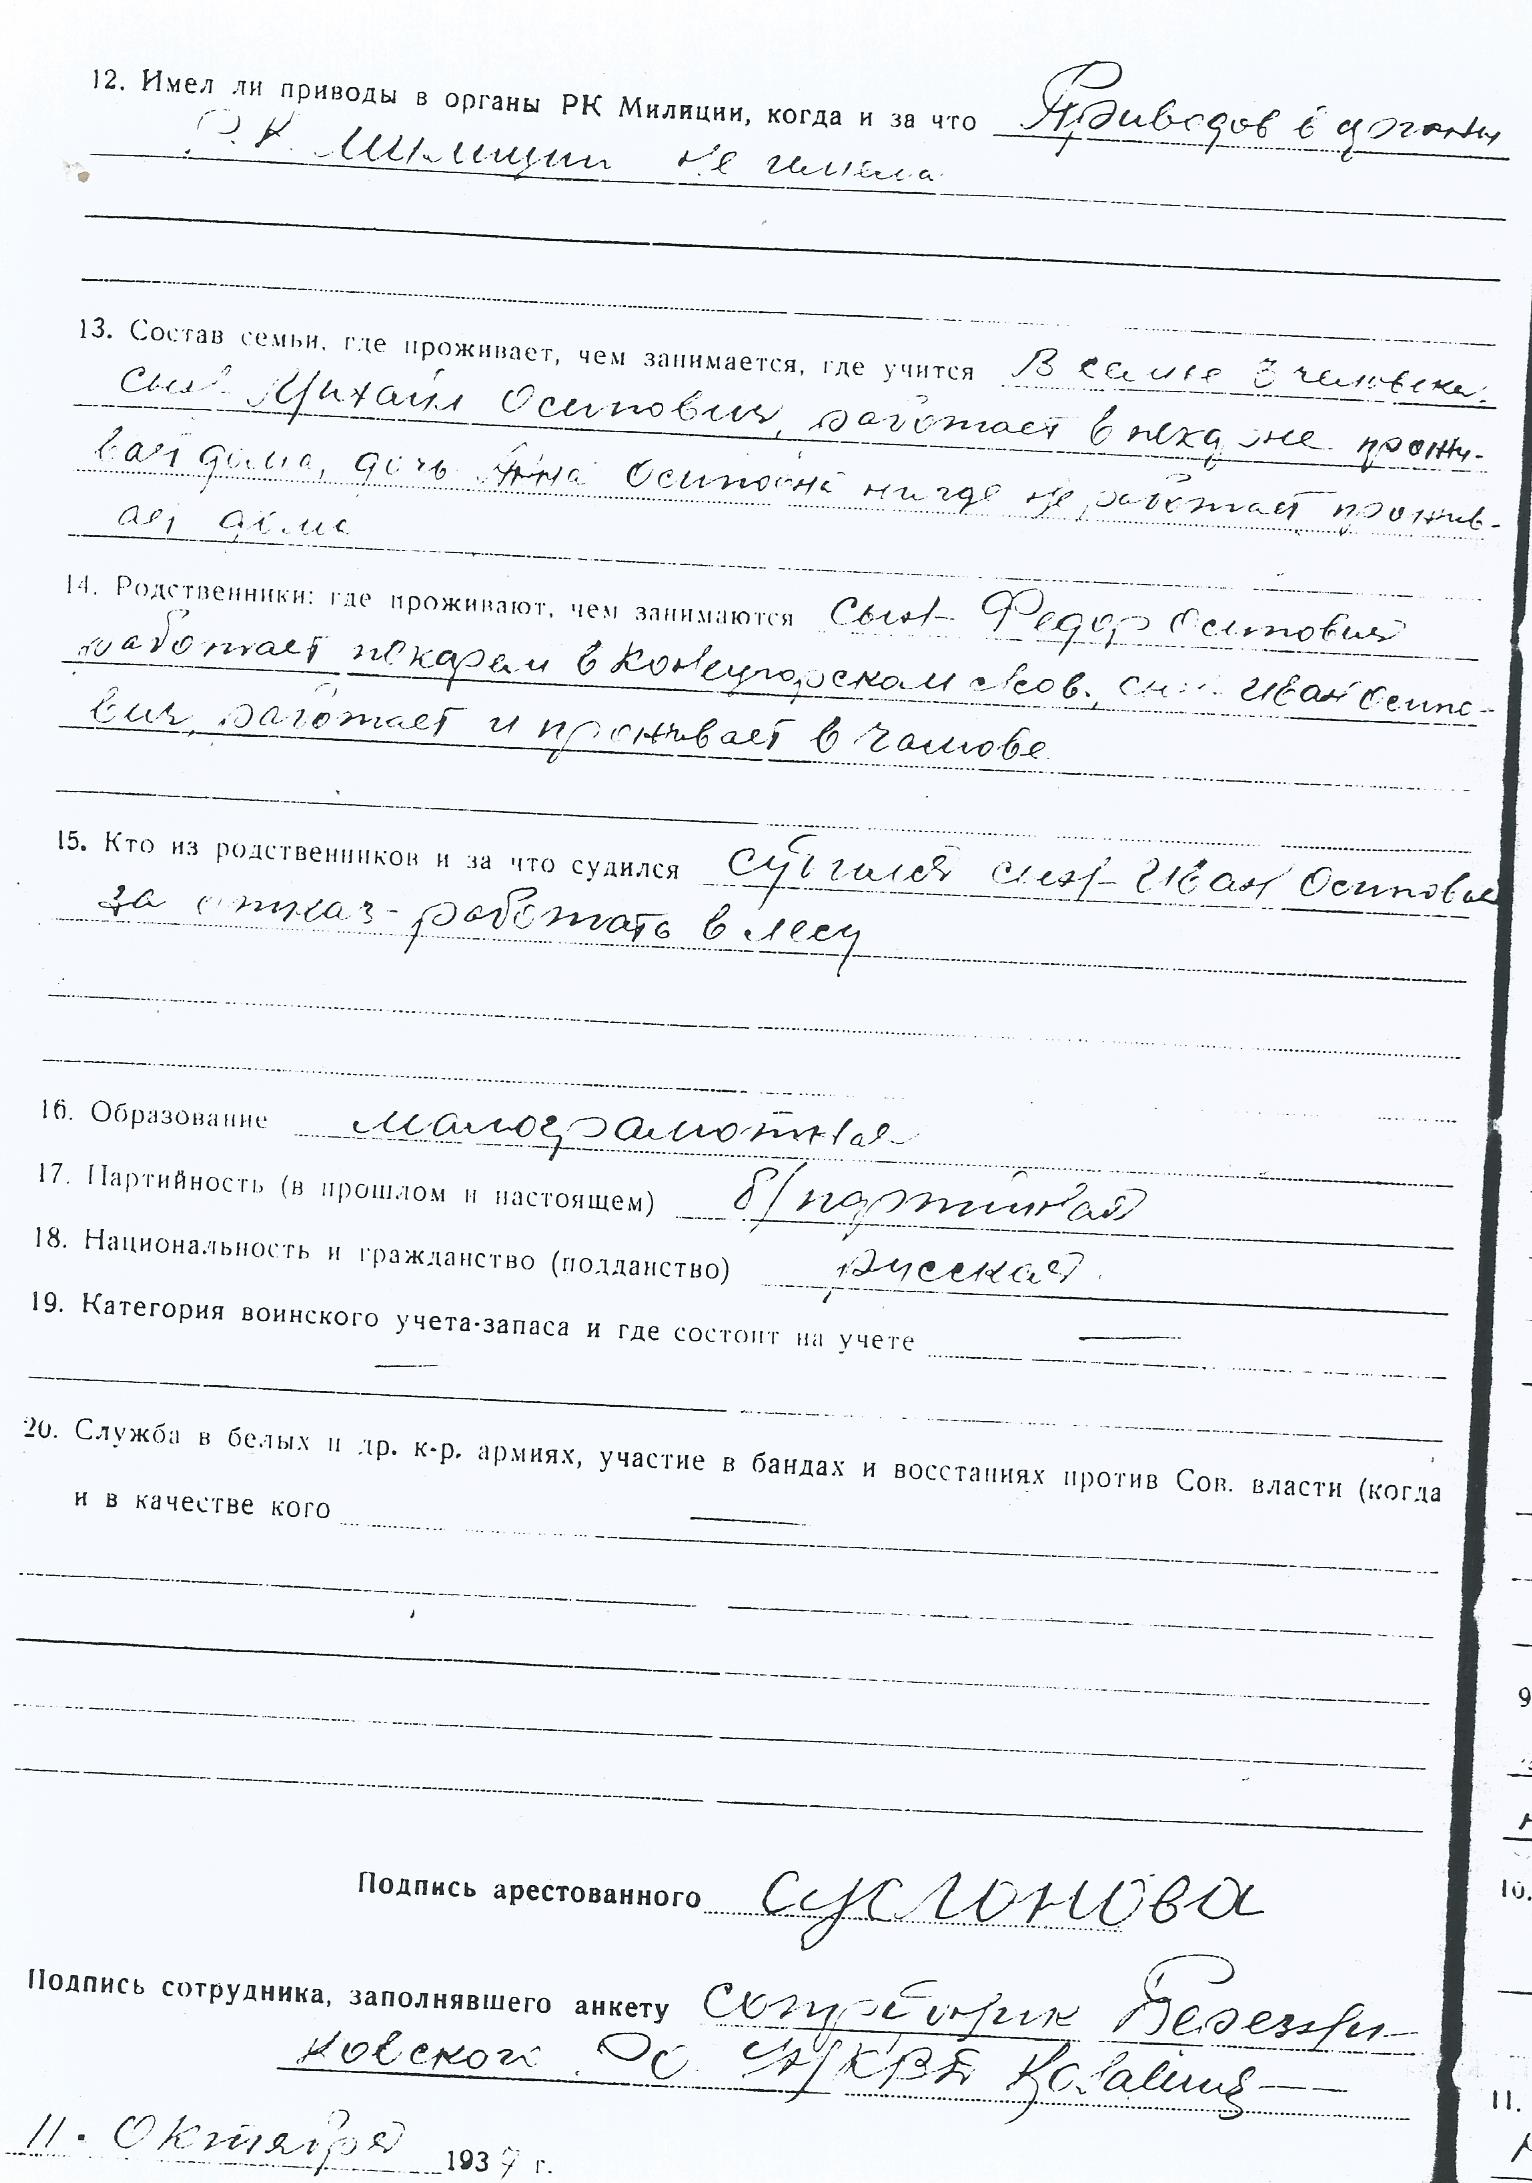 12. Имел ли приводы в органы РК Милиции, когда и за что Приводов в органы
Р.К. Милиции не имела
13. Состав семьи, где проживает, чем занимается, где учится В семье 3 человека.
сын Михаил Осипович, работает в прож-
вает дома, дочь Анна Осиповна нигде не работает прожив-
ает дома
14. Родственники: где проживают, чем занимаются сын Федор Осипович
работает пекарем в сын Иван Осипо-
вич, работает и проживает в
15. Кто из родственников и за что судился судился сын Иван Осипович
за отказ работать в лесу
16. Образование малограмотная
17. Партийность (в прошлом и настоящем) б/партийная
18. Национальность и гражданство (подданство) русская.
19. Категория воинского учета-запаса и где состоит на учете —
—
20. Служба в белых и др. к-р. армиях, участие в бандах и восстаниях против Сов. власти (когда
и в качестве кого —
Подпись арестованного Суслонова
Подпись сотрудника, заполнявшего анкету сотрудник Березни-
ковского НКВД
11. Октября 1937 г.
9
10.
11.